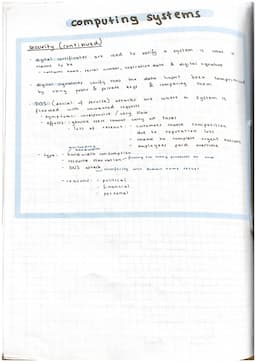 computing systems
security (continued)
- digital certificates are used to verify a system is what it
means to be
- contains name, serial number, expiration date & digital signature
- digital signatures verify that the data hasn't been compromised
by using public & private keys & comparing them
- DOS (denial of service) attacks are where a system is
flooded with unwanted requests
- symptoms: unresponsive / very slow
- effects: genuine users cannot carry out tasks
loss of revenue: customers choose competition
due to reputation loss
unable to complete urgent
employees paid overtime
- type: bandwidth consumption
resource starvation
DNS attack interfering with domain name server
- reasons: political
financial
personal